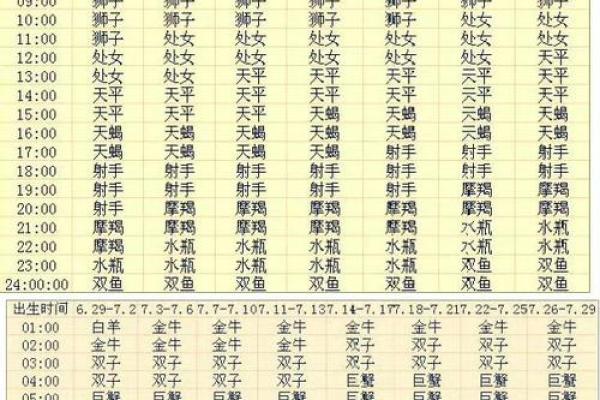 09:00 狮子 狮子 狮子 狮子 狮子 狮子 狮子
10:00 狮子 狮子 狮子 狮子 狮子 处女 处女
11:00 狮子 处女 处女 处女 处女 处女 处女
12:00 处女 处女 处女 处女 处女 处女 天平
13:00 处女 处女 天平 天平 天平 天平 天平
14:00 天平 天平 天平 天平 天平 天平 天平
15:00 天平 天平 天蝎 天蝎 天蝎 天蝎 天蝎
16:00 天蝎 天蝎 天蝎 天蝎 天蝎 天蝎 天蝎
17:00 天蝎 天蝎 天蝎 天蝎 射手 射手 射手
18:00 射手 射手 射手 射手 射手 射手 射手
19:00 射手 射手 射手 射手 射手 摩羯 摩羯
20:00 射手 摩羯 摩羯 摩羯 摩羯 摩羯 摩羯
21:00 摩羯 摩羯 摩羯 摩羯 摩羯 水瓶 水瓶
22:00 摩羯 水瓶 水瓶 水瓶 水瓶 水瓶 水瓶
23:00 水瓶 水瓶 水瓶 水瓶 水瓶 双鱼 双鱼
24:00:00 双鱼 双鱼 双鱼 双鱼 双鱼 双鱼 双鱼
出生时间 6.29-7.2 7.3-7.6 7.7-7.10 7.11-7.13 7.14-7.17 7.18-7.21 7.22-7.25 7.26-7.29
01:00 白羊 金牛 金牛 金牛 金牛 金牛 金牛 金牛
02:00 金牛 金牛 金牛 金牛 双子 双子 双子 双子
03:00 双子 双子 双子 双子 双子 双子 双子 双子
04:00 双子 双子 双子 双子 巨蟹 巨蟹 巨蟹 巨蟹
05:00 巨蟹 巨蟹 巨蟹 巨蟹 巨蟹 巨蟹 巨蟹 巨蟹